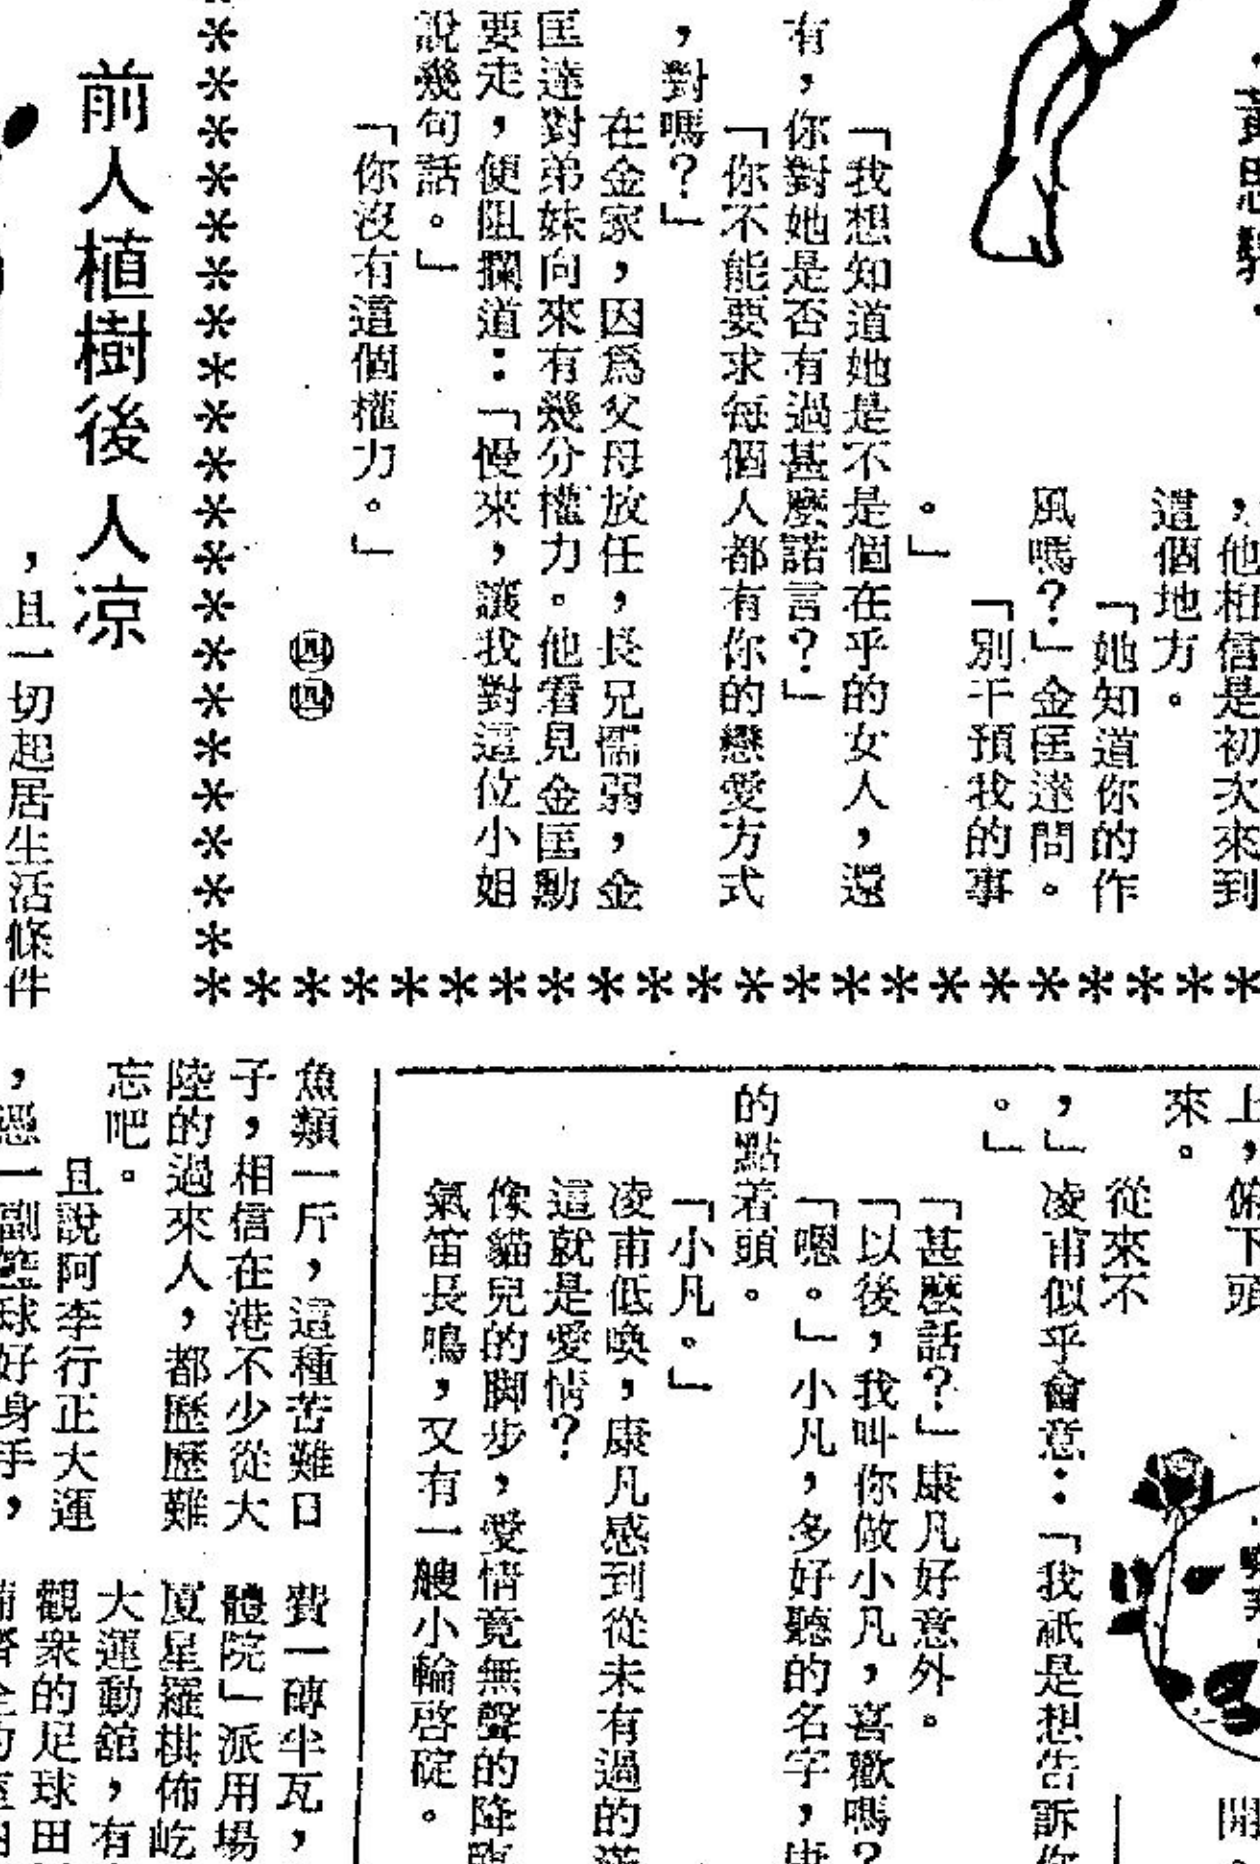 ，他相信是初次來到
這個地方。
「她知道你的作
風嗎？」金匡達問。
「別干預我的事
。」
「我想知道她是不是個在乎的女人，還
有，你對她是否有過甚麼諾言？」
「你不能要求每個人都有你的戀愛方式
，對嗎？」
在金家，因爲父母放任，長兄懦弱，金
匡達對弟妹向來有幾分權力。他看見金匡勳
要走，便阻攔道：「慢來，讓我對這位小姐
說幾句話。」
「你沒有這個權力。」
㊃㊃
前人植樹後人凉
，且一切起居生活條件
上，俯下頭
來。
從來不
，」凌甫似乎會意：「我祇是想告訴你
。」
「甚麼話？」康凡好意外。
「以後，我叫你做小凡，喜歡嗎？
「嗯。」小凡，多好聽的名字，康
的點着頭。
「小凡。」
凌甫低喚，康凡感到從未有過的滿
這就是愛情？
像貓兒的脚步，愛情竟無聲的降臨
氣笛長鳴，又有一艘小輪啓碇。
開
魚類一斤，這種苦難日
子，相信在港不少從大
陸的過來人，都歷歷難
忘吧。
且說阿李行正大運
，憑一副籃球好身手，
費一磚半瓦，
體院」派用場
廈星羅棋佈屹
大運動舘，有
觀衆的足球田